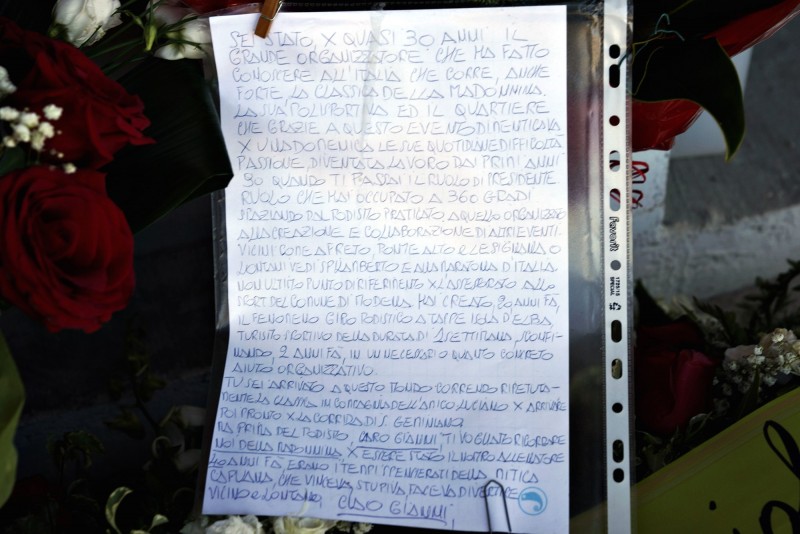 SEI STATO, X QUASI 30 ANNI IL
GRANDE ORGANIZZATORE CHE HA FATTO
CONOSCERE ALL'ITALIA CHE CORRE, ANCHE
FORTE, LA CLASSICA DELLA MADONNINA.
LA SUA POLISPORTIVA ED IL QUARTIERE
CHE GRAZIE A QUESTO EVENTO DIMENTICAVA
X UNA DOMENICA LE SUE QUOTIDIANE DIFFICOLTÀ
PASSIONE, DIVENTATA LAVORO DAI PRIMI ANNI
90 QUANDO TI PASSAI IL RUOLO DI PRESIDENTE.
RUOLO CHE HAI OCCUPATO A 360 GRADI
SPAZIANDO DAL PODISTO PRATICATO, A QUELLO ORGANIZZATO
ALLA CREAZIONE E COLLABORAZIONE DI ALTRI EVENTI.
VICINI COME A FRETO, PONTE ALTO E LESIGNANA O
LONTANI VEDI SPILAMBERTO E ALLA MARATONA D'ITALIA.
NON ULTIMO PUNTO DI RIFERIMENTO X L'ASSESSORATO ALLO
SPORT DEL COMUNE DI MODENA. HAI CREATO, 20 ANNI FA,
IL FENOMENO GIRO PODISTICO A TAPPE ISOLA D'ELBA,
TURISTICO SPORTIVO DELLA DURATA DI 1 SETTIMANA, SCONFI-
NANDO, 2 ANNI FA, IN UN NECESSARIO QUANTO CONCRETO
AIUTO ORGANIZZATIVO.
TU SEI ARRIVATO A QUESTO MONDO CORRENDO RIPETUTA-
MENTE LA CLASSICA IN COMPAGNIA DELL'AMICO LUCIANO X ARRIVARE
POI PRONTO X LA CORRIDA DI S. GEMINIANO
MA PRIMA DEL PODISTO, CARO GIANNI, TI VOGLIATO RICORDARE
NOI DELLA MADONNINA, X ESSERE STATO IL NOSTRO ALLENATORE
40 ANNI FA, ERANO I TEMPI SPENSIERATI DELLA MITICA
CAPLANA, CHE VINCEVA, STUPIVA, FACEVA DIVERTIRE
VICINO E LONTANO, CIAO GIANNI,
Favorit
SPECIAL